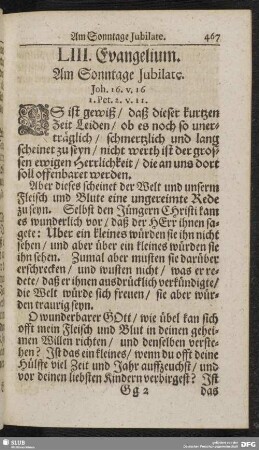 Am Sonntage Jubilate. 467
LIII. Evangelium.
Am Sonntage Jubilate.
Joh. 16. v. 16
1. Pet. 2. v. 11.
ES ist gewiß / daß dieser kurtzen
Zeit Leiden / ob es noch so uner-
träglich / schmertzlich und lang
scheinet zu seyn / nicht werth ist der gros-
sen ewigen Herrlichkeit / die an uns dort
soll offenbaret werden.
Aber dieses scheinet der Welt und unserm
Fleisch und Blute eine ungereimte Rede
zu seyn. Selbst den Jüngern Christi kam
es wunderlich vor / daß der HErr ihnen sa-
gete: Uber ein kleines würden sie ihn nicht
sehen / und aber über ein kleines würden sie
ihn sehen. Zumal aber musten sie darüber
erschrecken / und wusten nicht / was er re-
dete / daß er ihnen ausdrücklich verkündigte /
die Welt würde sich freuen / sie aber wür-
den traurig seyn.
O wunderbarer GOtt / wie übel kan sich
offt mein Fleisch und Blut in deinen gehei-
men Willen richten / und denselben verste-
hen? Ist das ein kleines / wenn du offt deine
Hülffe viel Zeit und Jahr auffzeuchst / und
vor deinen liebsten Kindern verbirgest? Ist
Gg 2 das
SLUB